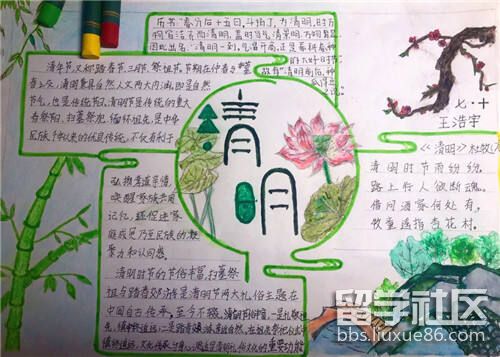 历书:"春分后十五日,斗指丁,为清明,时万
物皆洁齐而清明,盖时当气清景明,万物皆显
因此出名。"清明一到,气温升高,正是春耕春种
的大好时
故有"清明前后,种
清明节又称踏青节、三月节、祭祖节,节期在仲春与暮
春之交。清明兼具自然人文两大内涵,即是自然
节气,也是传统节日,清明节是传统的重大
春祭节日,扫墓祭祀,缅怀祖先,是中华
民族
的优良传统,不仅有利于
弘扬孝道亲情,
唤醒家族共同
记忆,还促进家
庭成员乃至民族的凝
聚力和认同感。
清明时节的节俗丰富,扫墓祭
祖与踏青郊游是清明节两大礼俗主题在
中国自古传承,至今不辍。
清明
七·十
王浩宇
《清明》杜牧
清明时节雨纷纷,
路上行人欲断魂。
借问酒家何处有,
牧童遥指杏花村。
留学社区
bbs.liuxue86.com